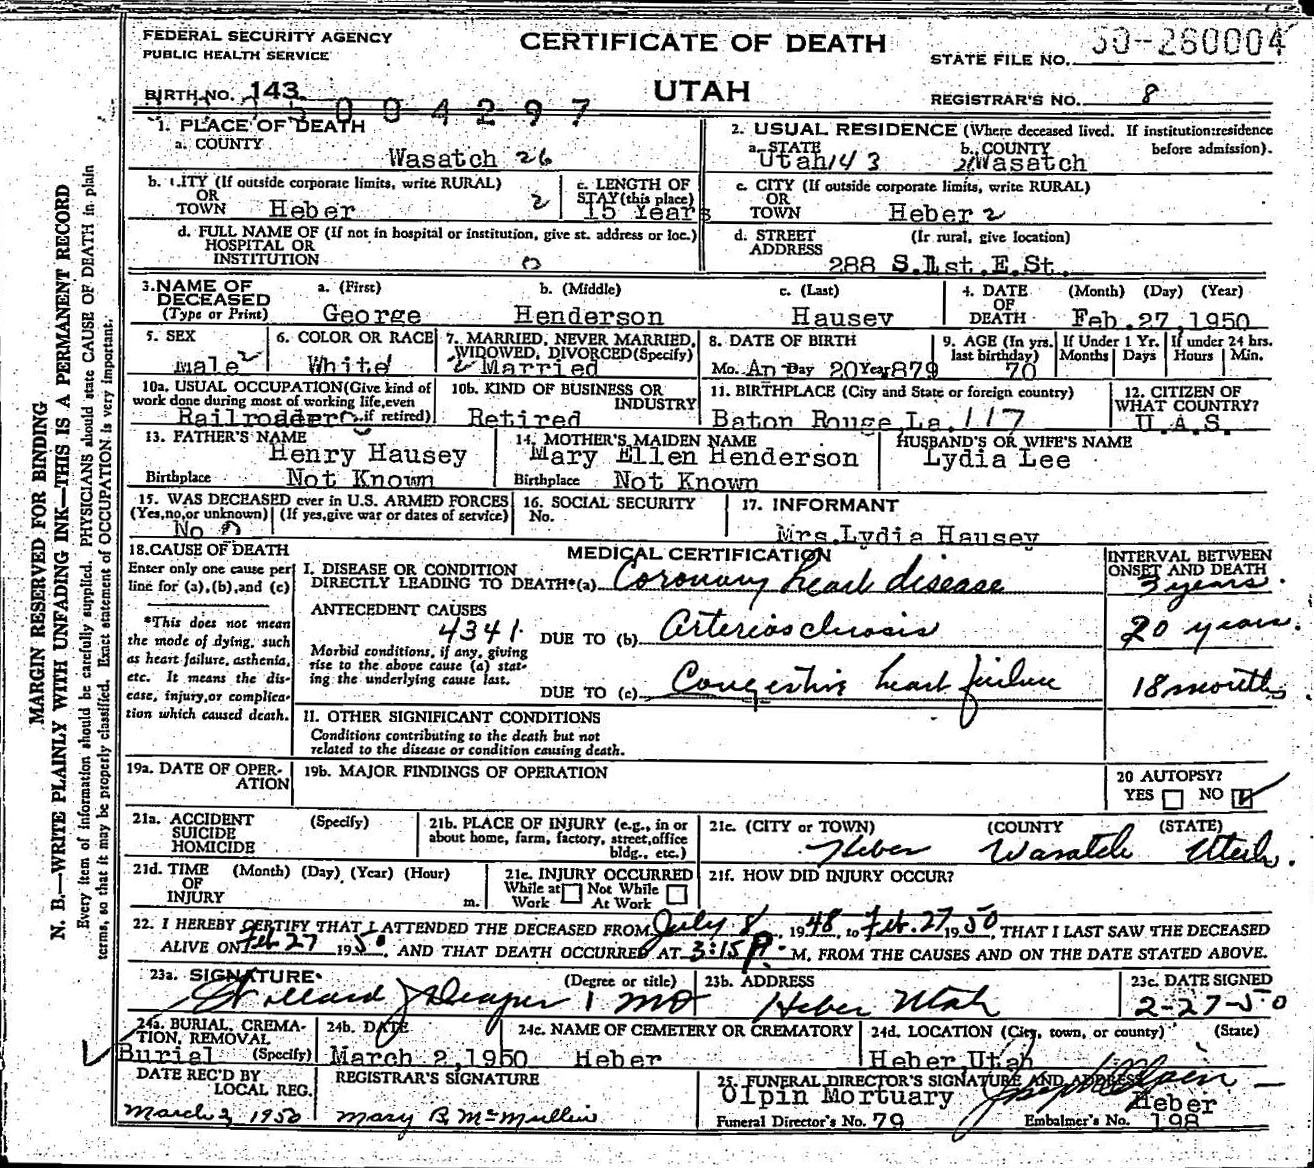 FEDERAL SECURITY AGENCY
PUBLIC HEALTH SERVICE
CERTIFICATE OF DEATH
UTAH
STATE FILE NO. 50-260004
BIRTH NO. 143
004297
REGISTRAR'S NO. 8
MARGIN RESERVED FOR BINDING
N. B.—WRITE PLAINLY WITH UNFADING INK—THIS IS A PERMANENT RECORD
Every item of information should be carefully supplied. PHYSICIANS should state CAUSE OF DEATH in plain
terms, so that it may be properly classified. Exact statement of OCCUPATION is very important.
1. PLACE OF DEATH
a. COUNTY
Wasatch 26
b. CITY (If outside corporate limits, write RURAL)
OR
TOWN Heber 2
c. LENGTH OF
STAY (this place)
15 Years
d. FULL NAME OF (If not in hospital or institution, give st. address or loc.)
HOSPITAL OR
INSTITUTION 0
2. USUAL RESIDENCE (Where deceased lived. If institution:residence
before admission).
a. STATE b. COUNTY
Utah 143 Wasatch
c. CITY (If outside corporate limits, write RURAL)
OR
TOWN Heber 2
d. STREET (Ir rural, give location)
ADDRESS
288 S.1st.E.St.
3. NAME OF
DECEASED
(Type or Print)
a. (First) b. (Middle) c. (Last)
George Henderson Hausey
4. DATE (Month) (Day) (Year)
OF
DEATH Feb.27,1950
5. SEX
Male
6. COLOR OR RACE
White
7. MARRIED, NEVER MARRIED,
WIDOWED, DIVORCED (Specify)
Married
8. DATE OF BIRTH
Mo. Ap Day 20 Year 879
9. AGE (In yrs. last birthday)
70
If Under 1 Yr.
Months Days
If under 24 hrs.
Hours Min.
10a. USUAL OCCUPATION (Give kind of
work done during most of working life, even
if retired)
Railroader
10b. KIND OF BUSINESS OR
INDUSTRY
Retired
11. BIRTHPLACE (City and State or foreign country)
Baton Rouge,La. 117
12. CITIZEN OF
WHAT COUNTRY?
U.A.S.
13. FATHER'S NAME
Henry Hausey
Birthplace Not Known
14. MOTHER'S MAIDEN NAME
Mary Ellen Henderson
Birthplace Not Known
HUSBAND'S OR WIFE'S NAME
Lydia Lee
15. WAS DECEASED ever in U.S. ARMED FORCES
(Yes,no,or unknown) (If yes,give war or dates of service)
No 0
16. SOCIAL SECURITY
No.
17. INFORMANT
Mrs.Lydia Hausey
18. CAUSE OF DEATH
Enter only one cause per
line for (a),(b),and (c)
*This does not mean
the mode of dying, such
as heart failure, asthenia,
etc. It means the dis-
ease, injury,or complica-
tion which caused death.
MEDICAL CERTIFICATION
INTERVAL BETWEEN
ONSET AND DEATH
I. DISEASE OR CONDITION
DIRECTLY LEADING TO DEATH*(a) Coronary heart disease 3 years.
ANTECEDENT CAUSES
4341.
DUE TO (b) arteriosclerosis 20 years.
Morbid conditions, if any, giving
rise to the above cause (a) stat-
ing the underlying cause last.
DUE TO (c) Congestive heart failure 18 months.
II. OTHER SIGNIFICANT CONDITIONS
Conditions contributing to the death but not
related to the disease or condition causing death.
19a. DATE OF OPER-
ATION
19b. MAJOR FINDINGS OF OPERATION
20 AUTOPSY?
YES NO
21a. ACCIDENT (Specify)
SUICIDE
HOMICIDE
21b. PLACE OF INJURY (e.g., in or
about home, farm, factory, street,office
bldg., etc.)
21c. (CITY or TOWN) (COUNTY (STATE)
Heber Wasatch Utah.
21d. TIME (Month) (Day) (Year) (Hour)
OF
INJURY m.
21e. INJURY OCCURRED
While at Not While
Work At Work
21f. HOW DID INJURY OCCUR?
22. I HEREBY CERTIFY THAT I ATTENDED THE DECEASED FROM July 8, 1948, to Feb. 27 1950, THAT I LAST SAW THE DECEASED
ALIVE ON Feb 27 1950, AND THAT DEATH OCCURRED AT 3:15 P. M, FROM THE CAUSES AND ON THE DATE STATED ABOVE.
23a. SIGNATURE (Degree or title)
MD
23b. ADDRESS
Heber Utah
23c. DATE SIGNED
2-27-50
24a. BURIAL, CREMA-
TION, REMOVAL
(Specify)
Burial
24b. DATE
March 2,1950
24c. NAME OF CEMETERY OR CREMATORY
Heber
24d. LOCATION (City, town, or county) (State)
Heber,Utah
DATE REC'D BY
LOCAL REG.
March 2, 1950
REGISTRAR'S SIGNATURE
Mary B. McMullin
25. FUNERAL DIRECTOR'S SIGNATURE AND ADDRESS
Olpin Mortuary
Heber
Funeral Director's No. 79
Embalmer's No. 198